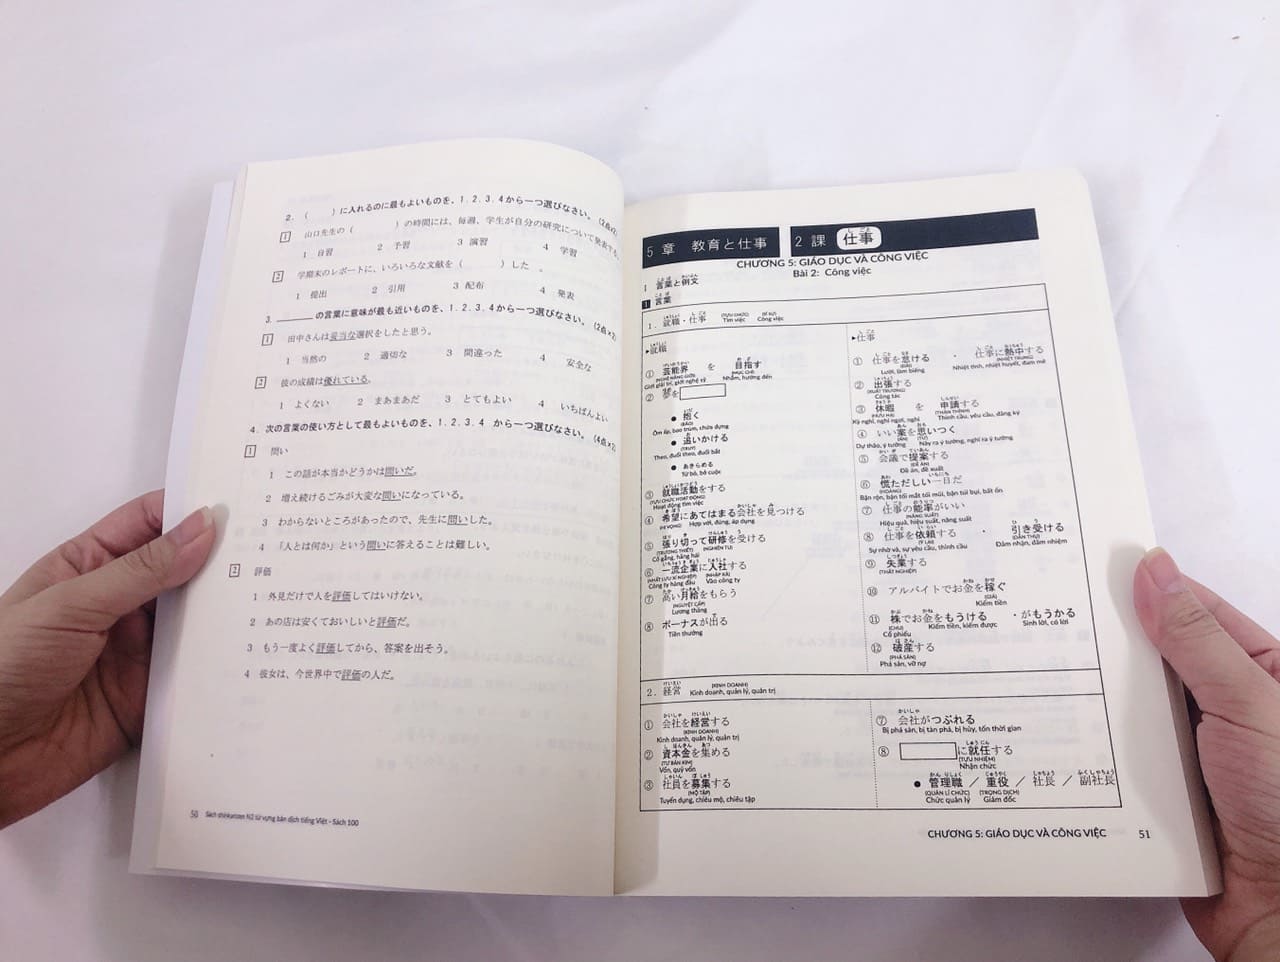 2. （　　）に入れるのに最もよいものを、1. 2. 3. 4から一つ選びなさい。（2点×2）
1 山口先生の（　　）の時間には、毎週、学生が自分の研究について発表する。
1 自習　2 予習　3 演習　4 学習
2 学期末のレポートに、いろいろな文献を（　　）した 。
1 提出　2 引用　3 配布　4 発表
3. ＿＿＿の言葉に意味が最も近いものを、1. 2. 3. 4から一つ選びなさい。（2点×2）
1 田中さんは妥当な選択をしたと思う。
1 当然の　2 適切な　3 間違った　4 安全な
2 彼の成績は優れている。
1 よくない　2 まあまあだ　3 とてもよい　4 いちばんよい
4. 次の言葉の使い方として最もよいものを、1. 2. 3. 4 から一つ選びなさい。（4点×2）
1 問い
1 この話が本当かどうかは問いだ。
2 増え続けるごみが大変な問いになっている。
3 わからないところがあったので、先生に問いした。
4 「人とは何か」という問いに答えることは難しい。
2 評価
1 外見だけで人を評価してはいけない。
2 あの店は安くておいしいと評価だ。
3 もう一度よく評価してから、答案を出そう。
4 彼女は、今世界中で評価の人だ。
50 Sách shinkanzen N2 từ vựng bản dịch tiếng Việt - Sách 100
5 章 教育と仕事 2 課 仕事
CHƯƠNG 5: GIÁO DỤC VÀ CÔNG VIỆC
Bài 2: Công việc
Ⅰ 言葉と例文
1 言葉
1. 就職・仕事 (TỰU CHỨC) Tìm việc (SĨ SỰ) Công việc
▸就職
① 芸能界 を 目指す
(NGHỆ NĂNG GIỚI) (MỤC CHỈ)
Giới giải trí, giới nghệ sỹ Nhắm, hướng đến
② 夢を
● 抱く
(BÃO)
Ôm ấp, bao trùm, chứa đựng
● 追いかける
(TRUY)
Theo, đuổi theo, đuổi bắt
● あきらめる
Từ bỏ, bỏ cuộc
③ 就職活動をする
(TỰU CHỨC HOẠT ĐỘNG)
Hoạt động tìm việc
④ 希望にあてはまる会社を見つける
(HI VỌNG) Hợp với, đúng, áp dụng
⑤ 張り切って研修を受ける
(TRƯƠNG THIẾT) (NGHIÊN TU)
Cố gắng, hăng hái
⑥ 一流企業に入社する
(NHẤT LƯU XÍ NGHIỆP) (NHẬP XÃ)
Công ty hàng đầu Vào công ty
⑦ 高い月給をもらう
(NGUYỆT CẤP)
Lương tháng
⑧ ボーナスが出る
Tiền thưởng
▸仕事
① 仕事を怠ける ・ 仕事に熱中する
(ĐÃI) (NHIỆT TRUNG)
Lười, làm biếng Nhiệt tình, nhiệt huyết, đam mê
② 出張する
(XUẤT TRƯƠNG)
Công tác
③ 休暇 を 申請する
(HƯU HẠ) (THÂN THỈNH)
Kỳ nghỉ, nghỉ ngơi, nghỉ Thỉnh cầu, yêu cầu, đăng ký
④ いい案を思いつく
(ÁN) (TƯ)
Dự thảo, ý tưởng Nảy ra ý tưởng, nghĩ ra ý tưởng
⑤ 会議で提案する
(ĐỀ ÁN)
Đề án, đề xuất
⑥ 慌ただしい一日だ
(HOẢNG)
Bận rộn, bận tối mắt tối mũi, bận túi bụi, bất ổn
⑦ 仕事の能率がいい
(NĂNG SUẤT)
Hiệu quả, hiệu suất, năng suất
⑧ 仕事を依頼する ・ 引き受ける
(Ỷ LẠI) (DẪN THỤ)
Sự nhờ vả, sự yêu cầu, thỉnh cầu Đảm nhận, đảm nhiệm
⑨ 失業する
(THẤT NGHIỆP)
⑩ アルバイトでお金を稼ぐ
(GIÁ)
Kiếm tiền
⑪ 株でお金をもうける ・がもうかる
(CHU) Kiếm tiền, kiếm được Sinh lời, có lời
Cổ phiếu
⑫ 破産する
(PHÁ SẢN)
Phá sản, vỡ nợ
2. 経営 (KINH DOANH)
Kinh doanh, quản lý, quản trị
① 会社を経営する
(KINH DOANH)
Kinh doanh, quản lý, quản trị
② 資本金を集める
(TƯ BẢN KIM)
Vốn, quỹ vốn
③ 社員を募集する
(MỘ TẬP)
Tuyển dụng, chiêu mộ, chiêu tập
⑦ 会社がつぶれる
Bị phá sản, bị tàn phá, bị hủy, tốn thời gian
⑧ に就任する
(TỰU NHIỆM)
Nhận chức
● 管理職 ／ 重役 ／ 社長 ／ 副社長
(QUẢN LÍ CHỨC) (TRỌNG DỊCH)
Chức quản lý Giám đốc
CHƯƠNG 5: GIÁO DỤC VÀ CÔNG VIỆC 51